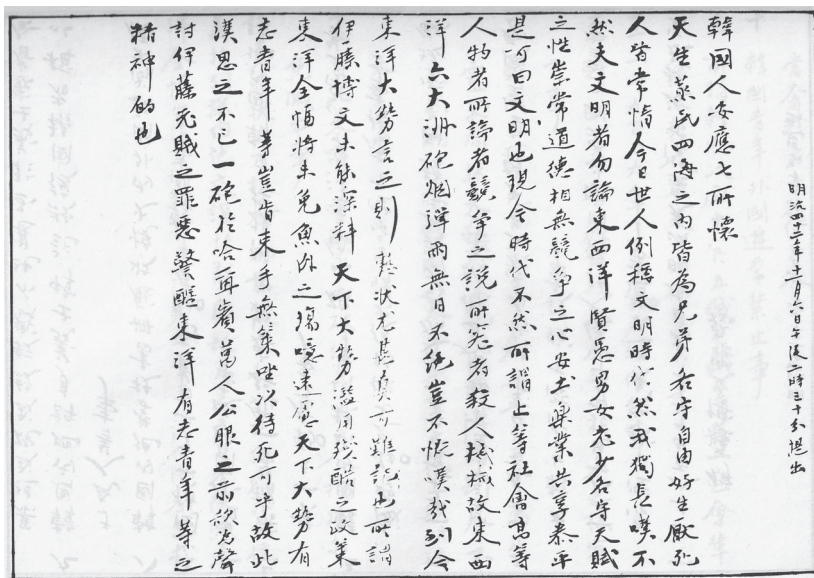 明治四十二年十一月六日午後二時三十分提出
韓國人安應七所懷
天生蒸民四海之內皆為兄弟各守自由好生厭死
人皆常情今日世人例稱文明時代然我獨長嘆不
然夫文明者勿論東西洋賢愚男女老少各守天賦
之性崇常道德相無競爭之心安土樂業共享泰平
是可曰文明也現今時代不然所謂上等社會高等
人物者所論者競爭之說所究者殺人機械故東西
洋六大洲砲烟彈雨無日不絕豈不慨嘆哉到今
東洋大勢言之則慙狀尤甚真可難記也所謂
伊藤博文未能深料天下大勢濫用殘酷之政策
東洋全幅將未免魚肉之場噫遠慮天下大勢有
志青年等豈肯束手無策坐以待死可乎故此
漢思之不已一砲於哈爾賓萬人公眼之前欲為聲
討伊藤老賊之罪惡警醒東洋有志青年等之
精神的也